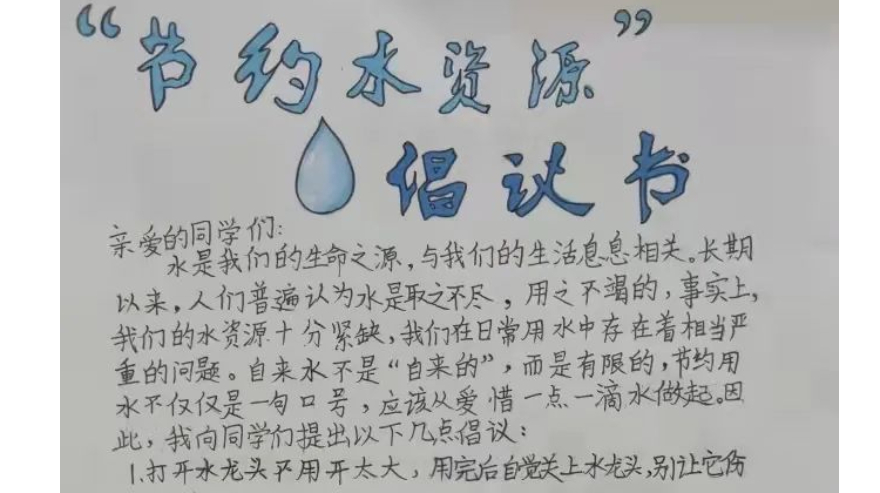 “节约水资源”
倡议书
亲爱的同学们:
水是我们的生命之源,与我们的生活息息相关。长期
以来,人们普遍认为水是取之不尽,用之不竭的,事实上,
我们的水资源十分紧缺,我们在日常用水中存在着相当严
重的问题。自来水不是“自来的”,而是有限的,节约用
水不仅仅是一句口号,应该从爱惜一点一滴水做起。因
此,我向同学们提出以下几点倡议:
1.打开水龙头不用开太大,用完后自觉关上水龙头,别让它伤